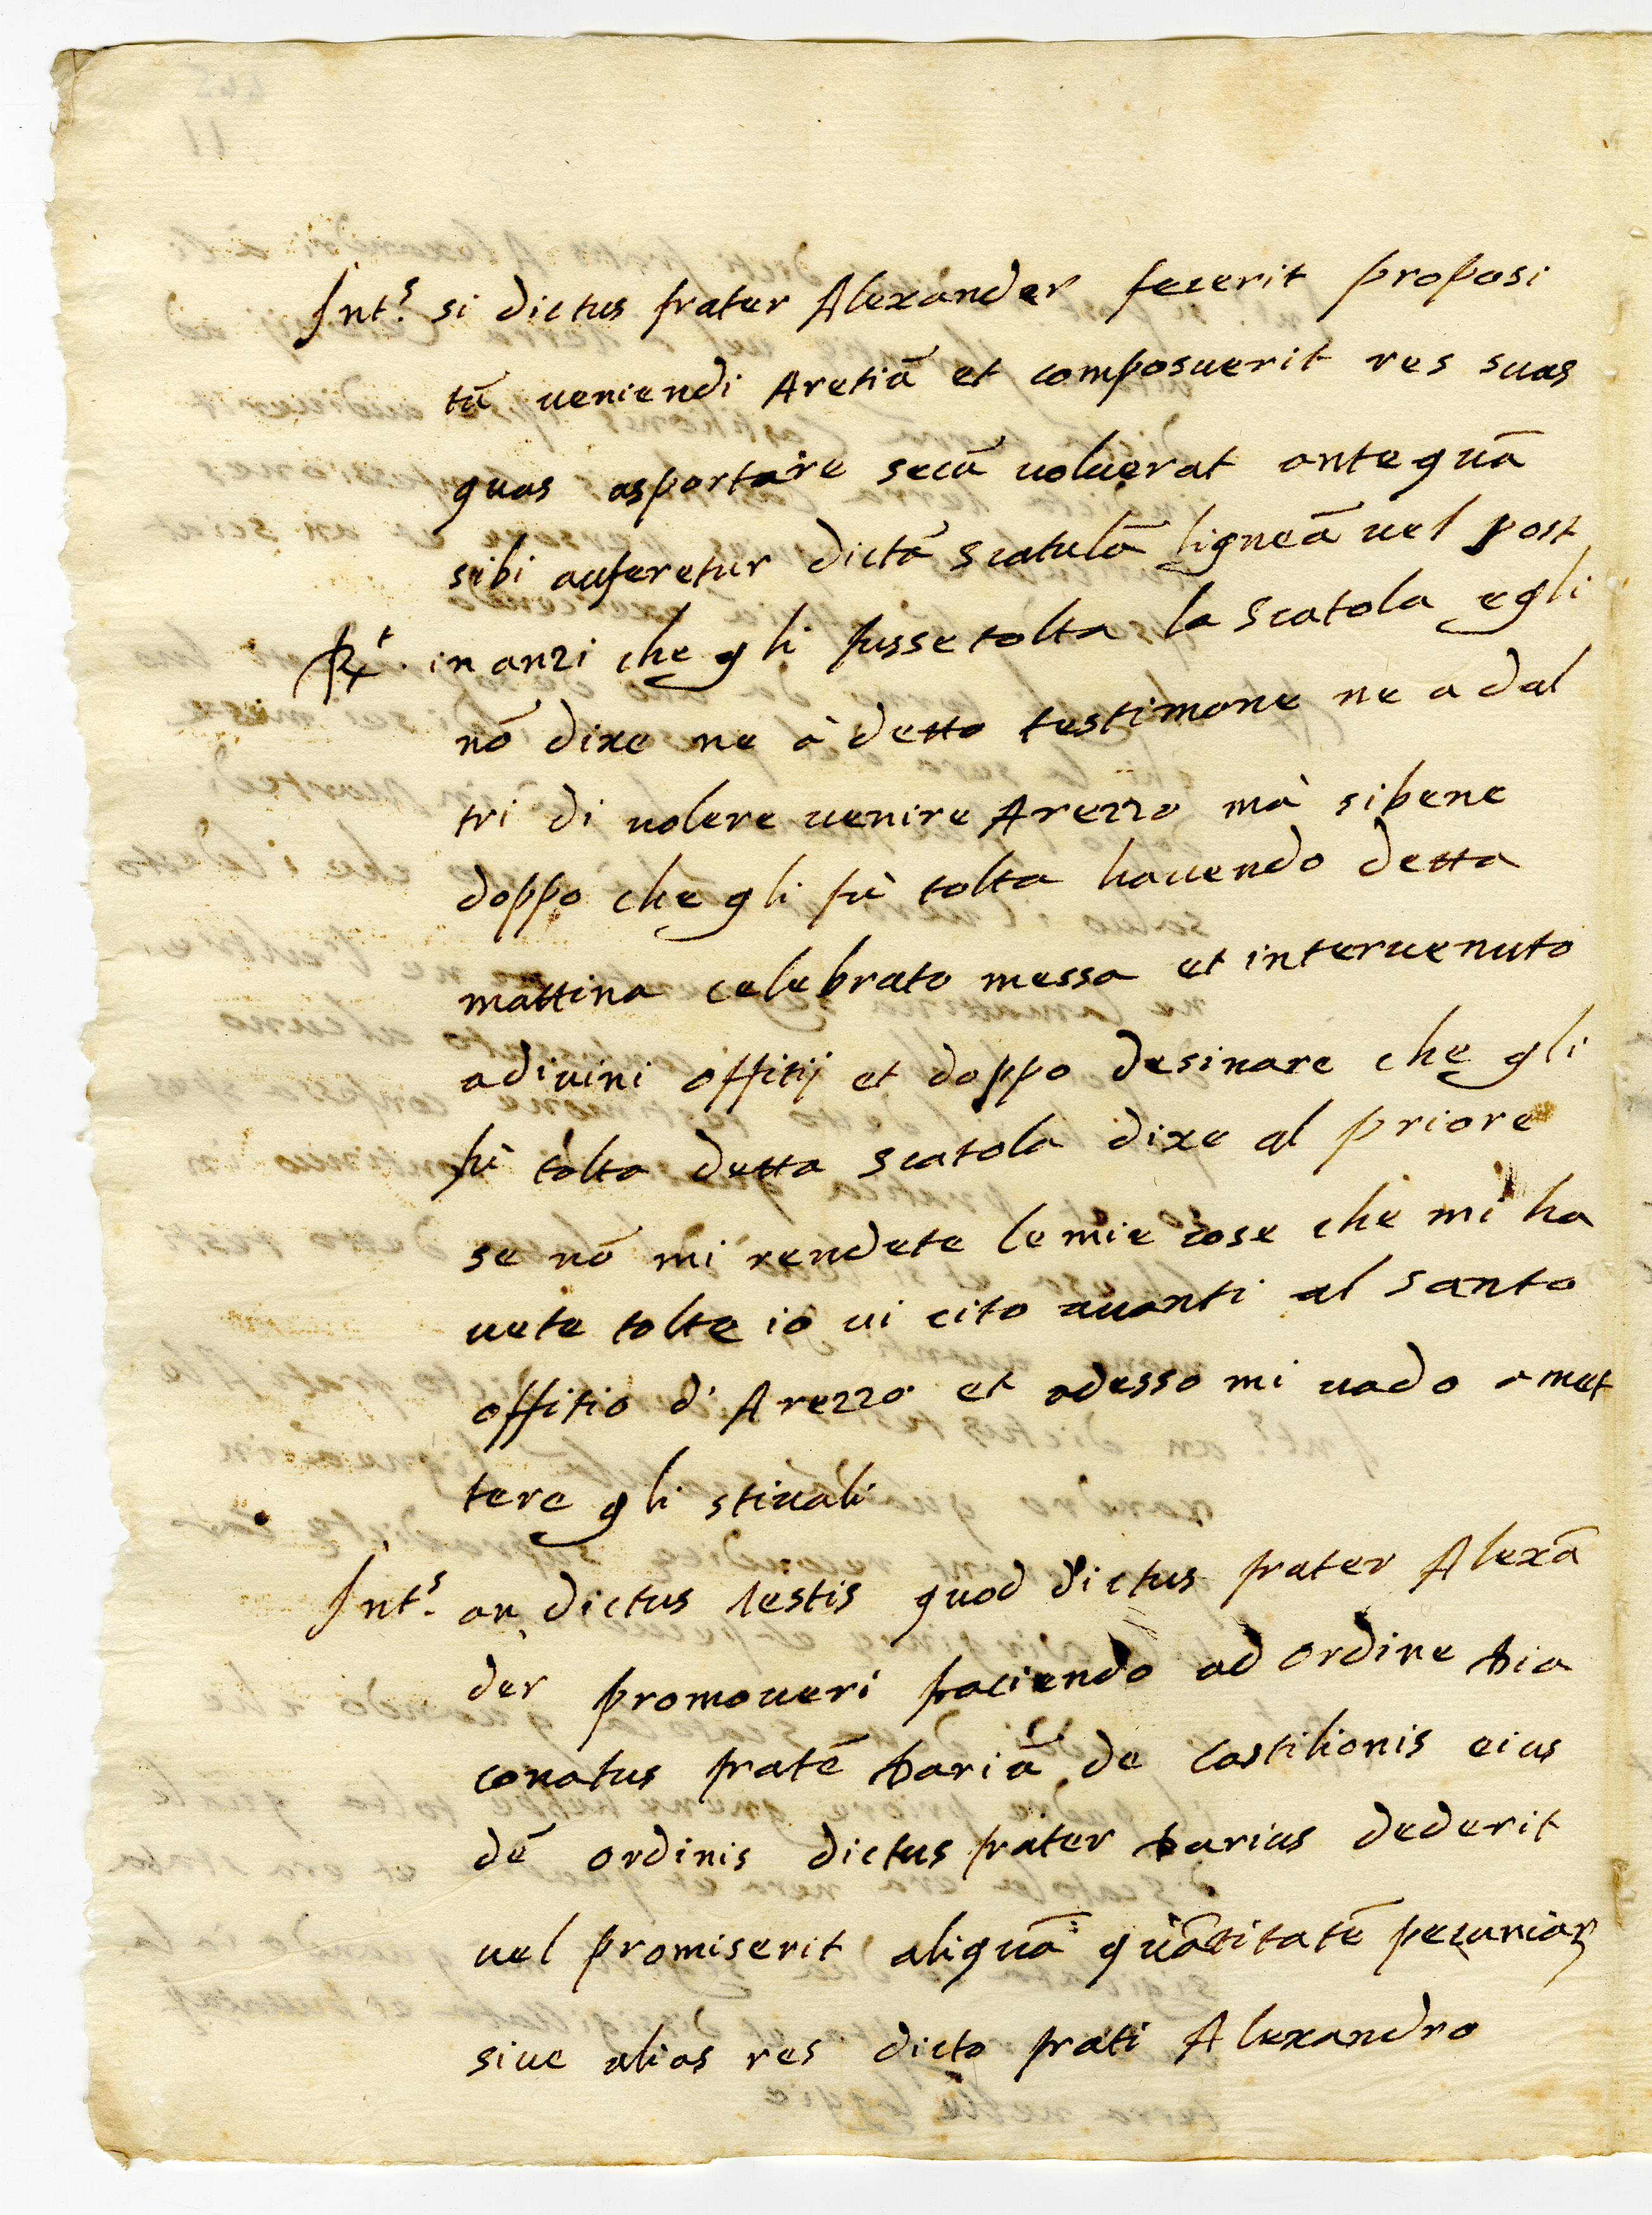 Int.s si dictus frater Alexander fecerit proposi
tũ ueniendi Aretiũ et composuerit res suas
quas asportare secũ uoluerat antequã
sibi auferetur dictã scatulã ligneã uel post
R.t inanzi che gli fusse tolta la scatola egli
nõ dixe ne à detto testimone ne adal
tri di uolere uenire Arezzo mà sibene
doppo che gli fù tolta hauendo detta
mattina celebrato messa et interuenuto
adiuini offitij et doppo desinare che gli
fù tolta detta scatola dixe al priore
se nõ mi rendete le mie cose che mi ha
uete tolte io ui cito auanti al santo
offitio d'Arezzo et adesso mi uado amet
tere gli stiuali
Int.s an dictus testis quod dictus frater Alexã
der promoueri faciendo ad ordine Dia
conatus fratẽ Dariũ de Castilionis eius
dẽ ordinis dictus frater Darius dederit
uel promiserit aliquã quãtitatẽ pecuniaꝝ
siue alias res dicto frati Alexandro